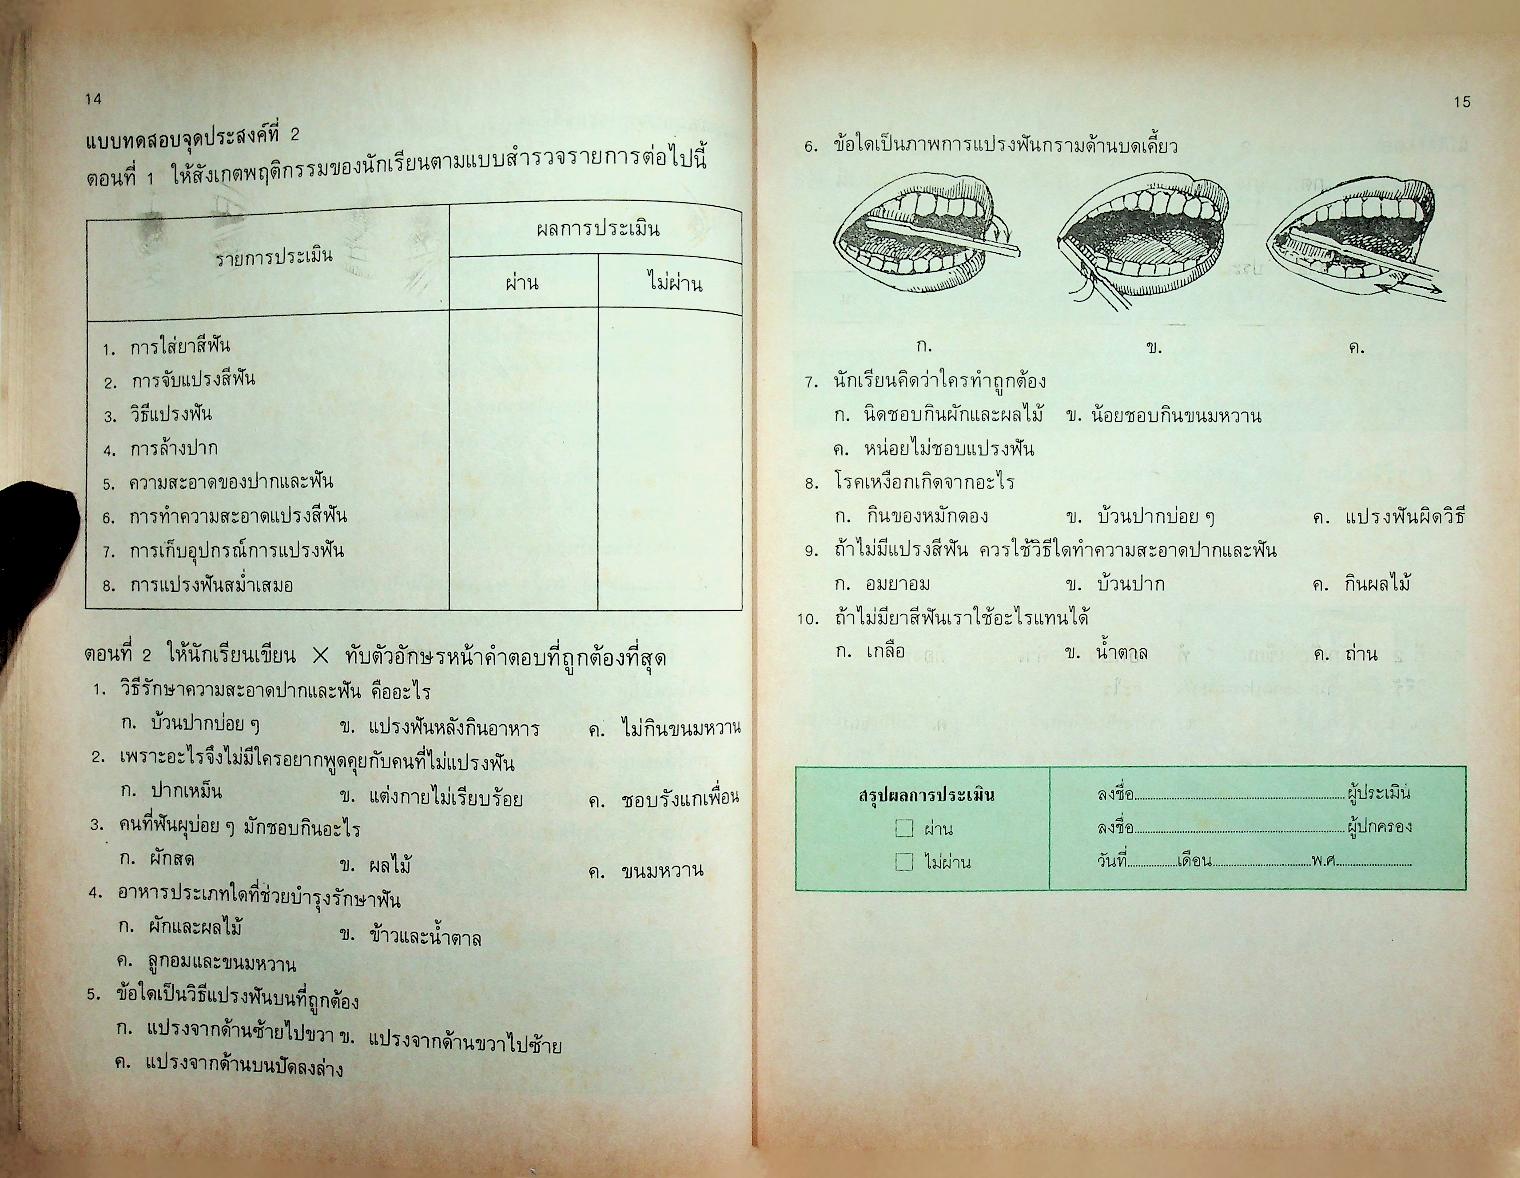 14
แบบทดสอบจุดประสงค์ที่ 2
ตอนที่ 1 ให้สังเกตพฤติกรรมของนักเรียนตามแบบสำรวจรายการต่อไปนี้
รายการประเมิน
ผลการประเมิน
ผ่าน ไม่ผ่าน
1. การใส่ยาสีฟัน
2. การจับแปรงสีฟัน
3. วิธีแปรงฟัน
4. การล้างปาก
5. ความสะอาดของปากและฟัน
6. การทำความสะอาดแปรงสีฟัน
7. การเก็บอุปกรณ์การแปรงฟัน
8. การแปรงฟันสม่ำเสมอ
ตอนที่ 2 ให้นักเรียนเขียน × ทับตัวอักษรหน้าคำตอบที่ถูกต้องที่สุด
1. วิธีรักษาความสะอาดปากและฟัน คืออะไร
ก. บ้วนปากบ่อย ๆ ข. แปรงฟันหลังกินอาหาร ค. ไม่กินขนมหวาน
2. เพราะอะไรจึงไม่มีใครอยากพูดคุยกับคนที่ไม่แปรงฟัน
ก. ปากเหม็น ข. แต่งกายไม่เรียบร้อย ค. ชอบรังแกเพื่อน
3. คนที่ฟันผุบ่อย ๆ มักชอบกินอะไร
ก. ผักสด ข. ผลไม้ ค. ขนมหวาน
4. อาหารประเภทใดที่ช่วยบำรุงรักษาฟัน
ก. ผักและผลไม้ ข. ข้าวและน้ำตาล
ค. ลูกอมและขนมหวาน
5. ข้อใดเป็นวิธีแปรงฟันบนที่ถูกต้อง
ก. แปรงจากด้านซ้ายไปขวา ข. แปรงจากด้านขวาไปซ้าย
ค. แปรงจากด้านบนปัดลงล่าง
15
6. ข้อใดเป็นภาพการแปรงฟันกรามด้านบดเคี้ยว
ก. ข. ค.
7. นักเรียนคิดว่าใครทำถูกต้อง
ก. นิดชอบกินผักและผลไม้ ข. น้อยชอบกินขนมหวาน
ค. หน่อยไม่ชอบแปรงฟัน
8. โรคเหงือกเกิดจากอะไร
ก. กินของหมักดอง ข. บ้วนปากบ่อย ๆ ค. แปรงฟันผิดวิธี
9. ถ้าไม่มีแปรงสีฟัน ควรใช้วิธีใดทำความสะอาดปากและฟัน
ก. อมยาอม ข. บ้วนปาก ค. กินผลไม้
10. ถ้าไม่มียาสีฟันเราใช้อะไรแทนได้
ก. เกลือ ข. น้ำตาล ค. ถ่าน
สรุปผลการประเมิน
ผ่าน
ไม่ผ่าน
ลงชื่อ........................................ผู้ประเมิน
ลงชื่อ........................................ผู้ปกครอง
วันที่..........เดือน....................พ.ศ...............